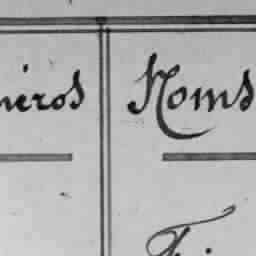 néros Noms